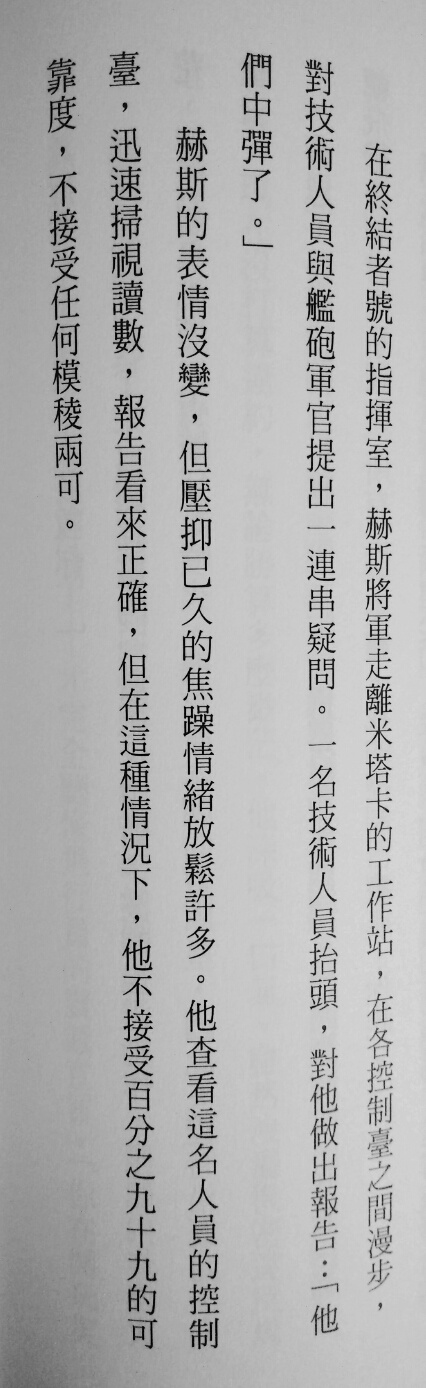 在終結者號的指揮室，赫斯將軍走離米塔卡的工作站，在各控制臺之間漫步，
對技術人員與艦砲軍官提出一連串疑問。一名技術人員抬頭，對他做出報告：「他
們中彈了。」
赫斯的表情沒變，但壓抑已久的焦躁情緒放鬆許多。他查看這名人員的控制
臺，迅速掃視讀數，報告看來正確，但在這種情況下，他不接受百分之九十九的可
靠度，不接受任何模稜兩可。